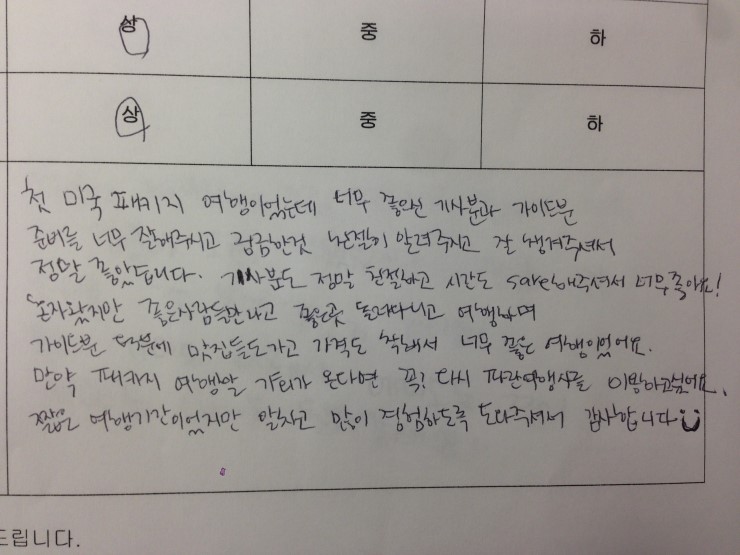 상 중 하
상 중 하
첫 미국 패키지 여행이었는데 너무 좋으신 기사분과 가이드분
준비를 너무 잘해주시고 궁금한것 친절히 알려주시고 잘 챙겨주셔서
정말 좋았습니다. 기사분도 정말 친절하고 시간도 save해주셔서 너무좋아요!
혼자왔지만 좋은사람들만나고 좋은곳 돌아다니고 여행하며
가이드분 덕분에 맛집들도가고 가격도 착해서 너무 좋은 여행이었어요.
만약 패키지 여행할 기회가 온다면 꼭! 다시 파란여행사를 이용하고싶어요.
짧은 여행기간이었지만 알차고 많이 경험하도록 도와주셔서 감사합니다
드립니다.